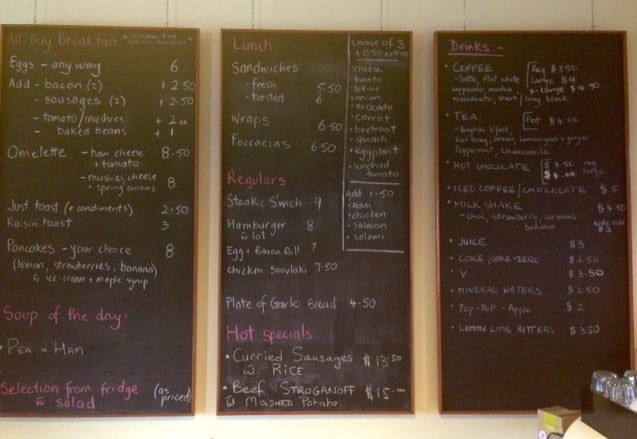 All Day Breakfast:
Eggs - any way 6
Add - bacon (2) + 2.50
- sausages (2) + 2.50
- tomato/mushies + 2
- baked beans + 1
Omelette - ham cheese + tomato 8.50
- mushies, cheese + spring onions 8
Just toast (+ condiments) 2.50
Raisin toast 3
Pancakes - your choice 8
(lemon, strawberries, banana)
w ice-cream + maple syrup
Soup of the day:
• Pea + Ham
Selection from fridge (as priced)
w salad
Lunch
Sandwiches
- fresh 5.50
- toasted 6
Wraps 6.50
Foccacias 6.50
choice of 3
+ 0.50 extra
• cheese
• lettuce
• onion
• avocado
• carrot
• beetroot
• spinach
• eggplant
• sundried tomato
Add 1.50
• ham
• chicken
• salmon
• salami
Regulars
Steak S'wich 9
Hamburger 8
w lot
Egg + Bacon Roll 7
Chicken Souvlaki 7.50
Plate of Garlic Bread 4.50
Hot specials
• Curried Sausages $13.50
w Rice
• Beef Stroganoff $15.00
w Mashed Potato
Drinks:-
• COFFEE
- latte, flat white
cappucino, mocha
machiato, short / long black
Reg $3.50
Large $4
X-Large $4.50
• TEA
Pot $4.00
- English B'fast,
Earl Grey, Green, Lemongrass + ginger
Peppermint, chamomile
• HOT CHOCOLATE $3.50 reg
$4.00 large
• ICED COFFEE/CHOCOLATE $5
• MILK SHAKE $4.50
- choc, strawberry, caramel, banana
kids size $3
• JUICE $3
• COKE/COKE-ZERO $2.50
• V $3.50
• MINERAL WATERS $2.50
• POP-TOP - Apple $2
• LEMON LIME BITTERS $3.50